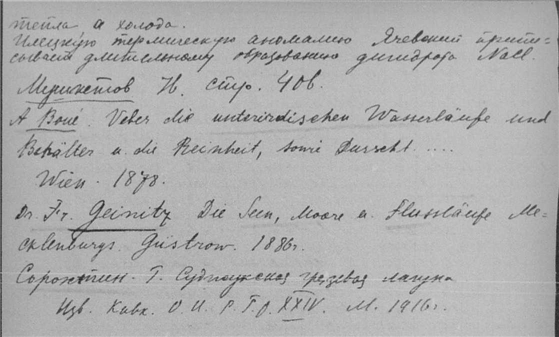 тепла и холода.
Илецкую термическую аномалию Ячевский припи-
сывает длительному образованию дигидрата NaCl.
Мушкетов II. стр. 406.
A Boué. Ueber die unterirdischen Wasserläufe und
Behälter u. die Reinheit, sowie Dursicht ....
Wien. 1878.
Dr. Fr. Geinitz Die Seen, Moore u. Flussläufe Me-
cklenburgs. Güstrow. 1886г.
Сорокин. Т. грязевая лагуна
Изв. Кавк. О. И. Р. Г. О. XXIV. М. 1916г.